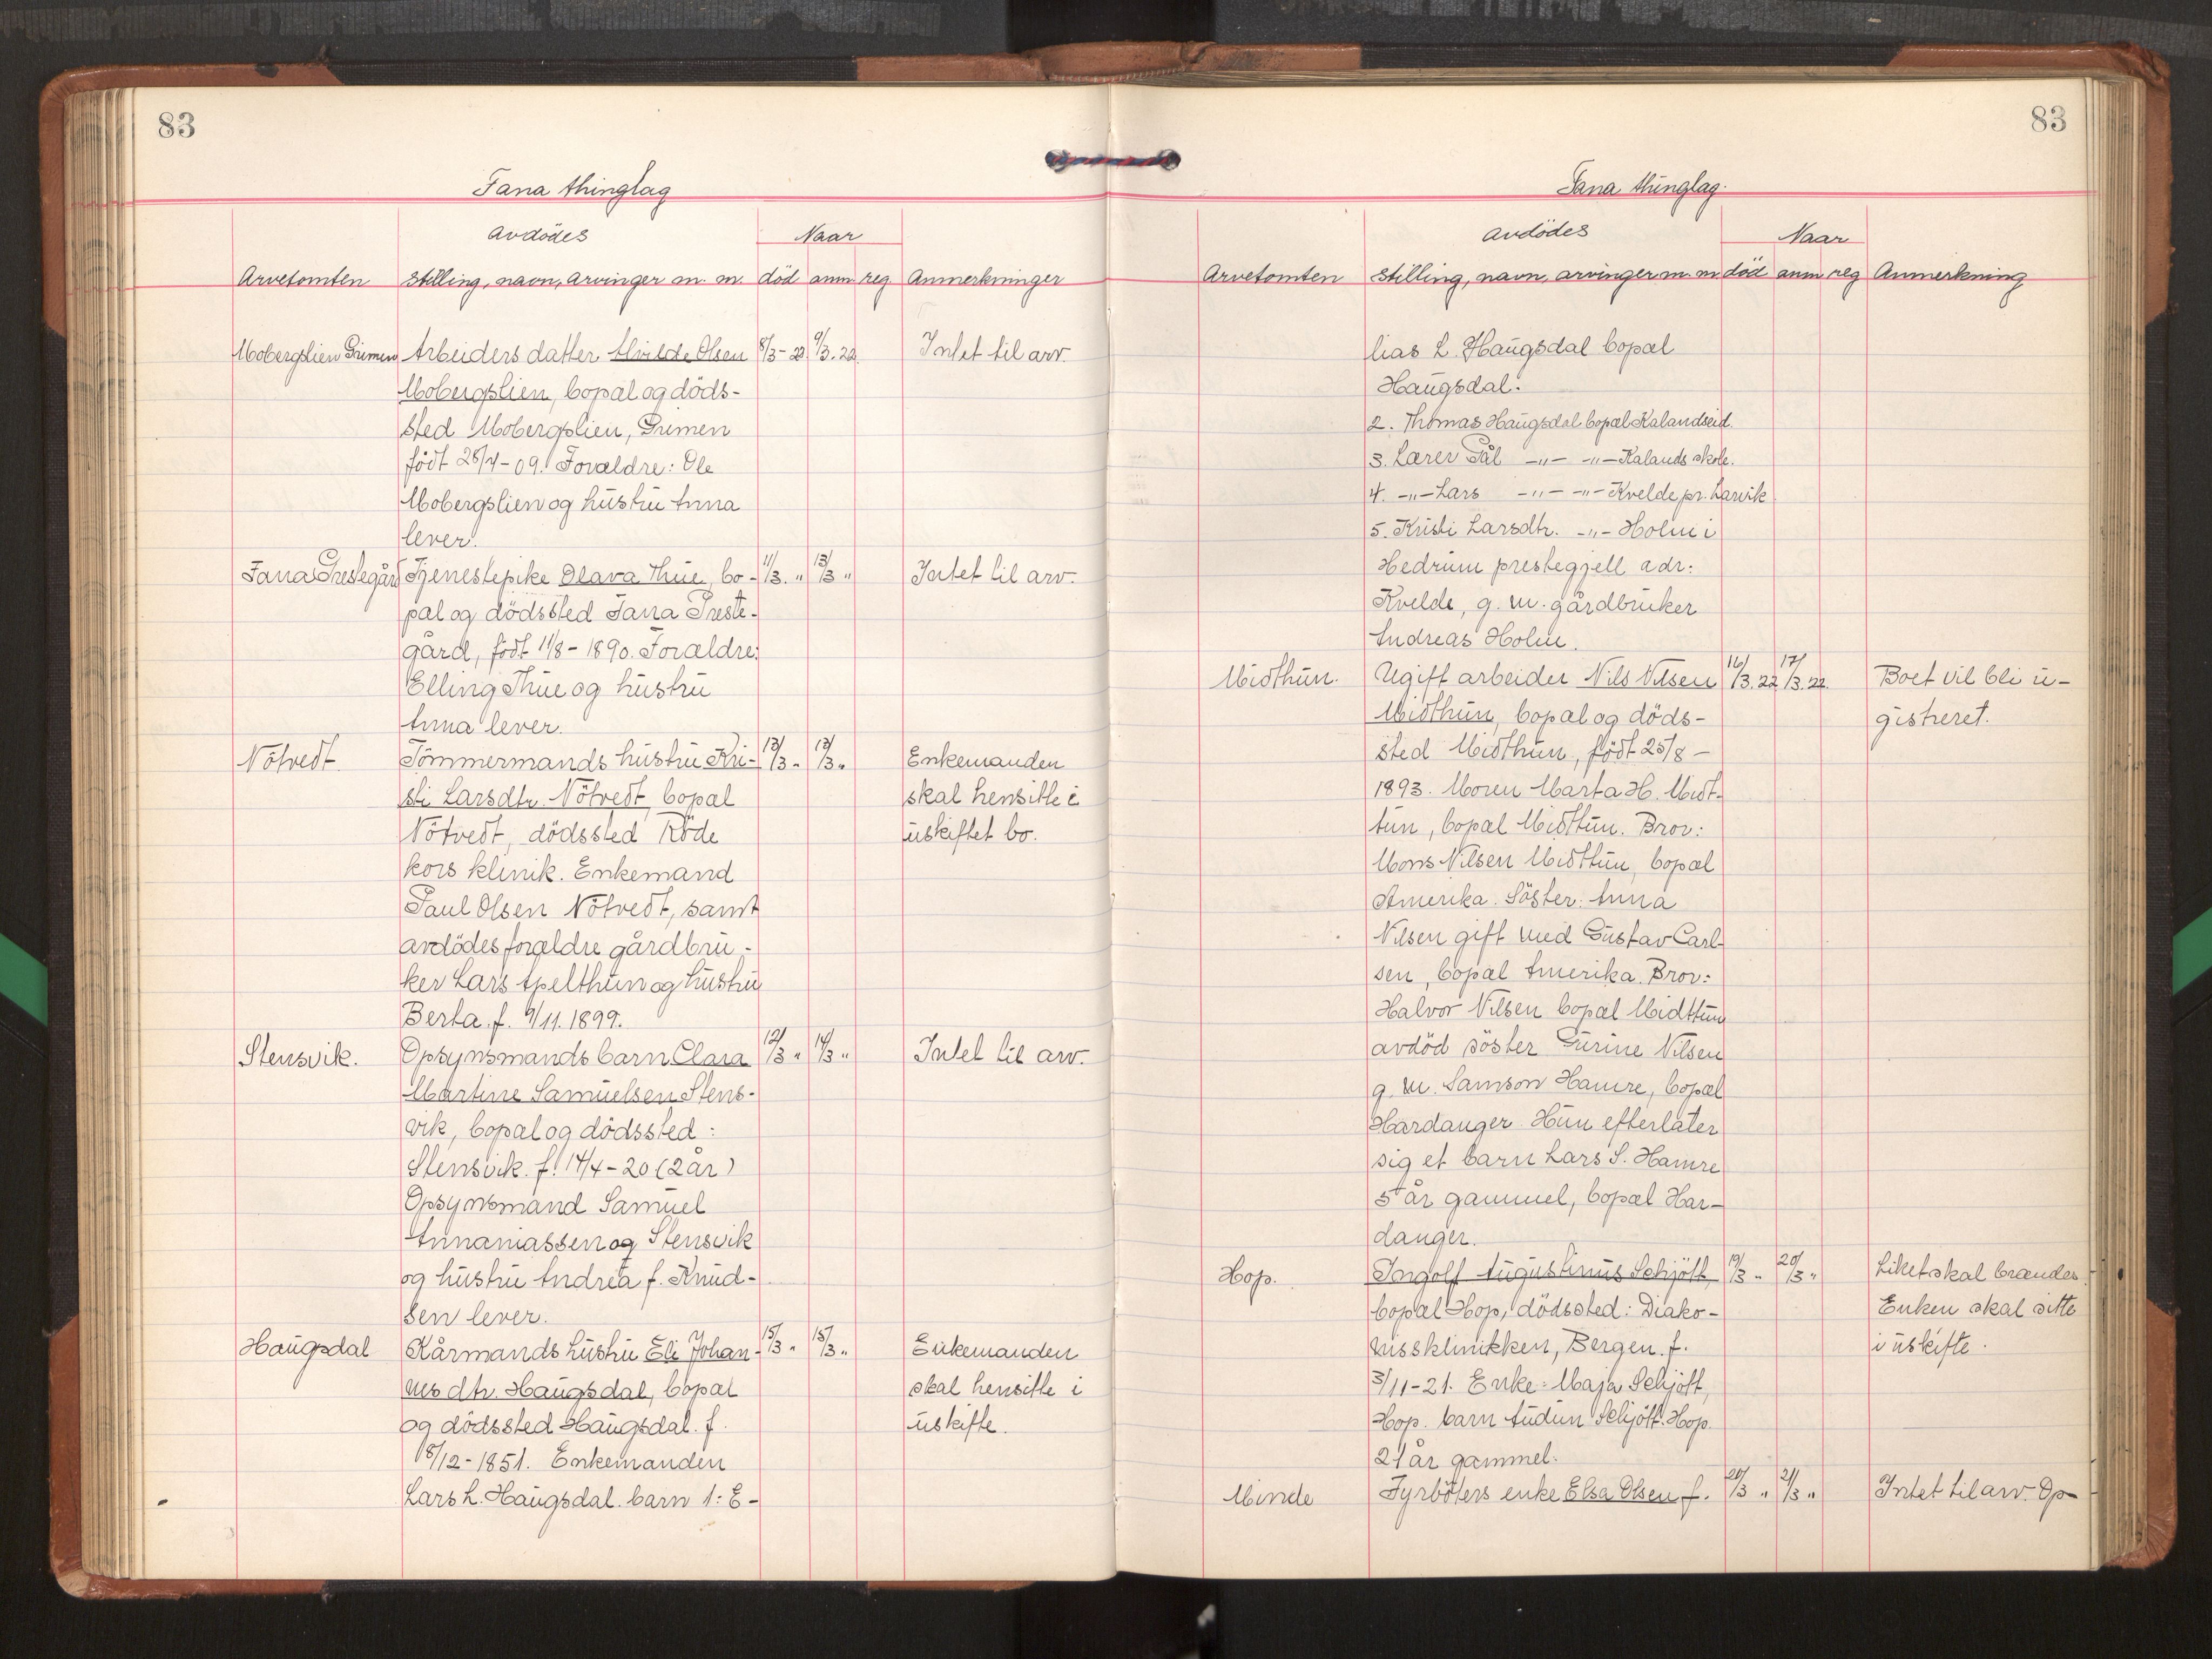 83
Fana thinglag
avdödes
Naar
Arvetomten stilling, navn, arvinger m. m. död anm. reg. Anmerkninger
Mobergslien Grimen Arbeiders datter Alvilde Olsen 8/3-22 9/3.22. Intet til arv.
Mobergslien, bopæl og döds-
sted Mobergslien, Grimen
född 28/4-09. Forældre: Ole
Mobergslien og hustru Anna
lever.
Fana Prestegård Tjenestepike Olava Thue, bo- 11/3. " 13/3 " Intet til arv.
pæl og dödssted Fana Preste-
gård, födt 11/8-1890. Forældre:
Elling Thue og hustru
Anna lever.
Nötvedt. Tömmermands hustru Kri- 13/3 " 13/3 " Enkemanden
sti Larsdtr. Nötvedt, bopæl skal hensitte i
Nötvedt, dödssted Röde uskiftet bo.
kors klinik. Enkemand
Paul Olsen Nötvedt, samt
avdödes forældre gårdbru-
ker Lars Apelthun og hustru
Berta. f. 9/11. 1899.
Stensvik. Opsynsmands barn Clara 12/3 " 14/3 " Intet til arv.
Martine Samuelsen Stens-
vik, bopæl og dödssted:
Stensvik. f. 14/4-20 (2 år)
Opsynsmand Samuel
Annaniassen og Stensvik
og hustru Andrea f. Knud-
sen lever.
Haugsdal Kårmands hustru Eli Johan- 15/3 " 15/3 " Enkemanden
nes dtr. Haugsdal, bopæl skal hensitte i
og dödssted Haugsdal. f. uskifte.
18/12-1851. Enkemanden
Lars L. Haugsdal. barn 1: E-
83
Fana thinglag.
avdödes
Naar
Arvetomten stilling, navn, arvinger m. m. död anm reg Anmerkning
lias L. Haugsdal bopæl
Haugsdal.
2. Thomas Haugsdal bopæl Kalandseid.
3. Lærer Pål -"- -"- Kalands skole.
4. -"- Lars -"- -"- Kvelde pr. Larvik
5. Kristi Larsdtr. -"- Holm i
Hedrum prestegjell adr:
Kvelde, g. m. gårdbruker
Andreas Holm.
Midthun. Ugift arbeider Nils Nilsen 16/3.22 17/3.22. Boet vil bli u-
Midthun, bopæl og döds- gistreret.
sted Midthun, födt 25/8-
1893. Moren Marta H. Midt-
tun, bopæl Midthun. Bror:
Mons Nilsen Midthun, bopæl
Amerika. Söster: Anna
Nilsen gift med Gustav Carl-
sen, bopæl Amerika. Bror:
Halvor Nilsen bopæl Midttun
avdöd söster Gurine Nilsen
g. m. Samson Hamre, bopæl
Hardanger Hun efterlater
sig et barn Lars S. Hamre
5 år gammel, bopæl Har-
danger.
Hop. Ingolf Augustinus Schjött, 19/3 " 20/3 " Liket skal brændes.
bopæl Hop, dödssted: Diako- Enken skal sitte
nissklinikken, Bergen. f. i uskifte.
3/11-21. Enke: Maja Schjött,
Hop. barn Audun Schjött. Hop.
21 år gammel.
Minde Fyrböters enke Elsa Olsen f. 20/3 " 21/3 " Intet til arv. Op-